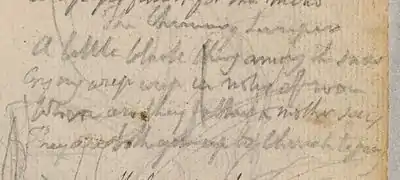 for the
The Chimney Sweeper
A little black thing among the snow
Crying weep weep in notes of woe
Where are they father & mother say
They are both gone up to Church to pray